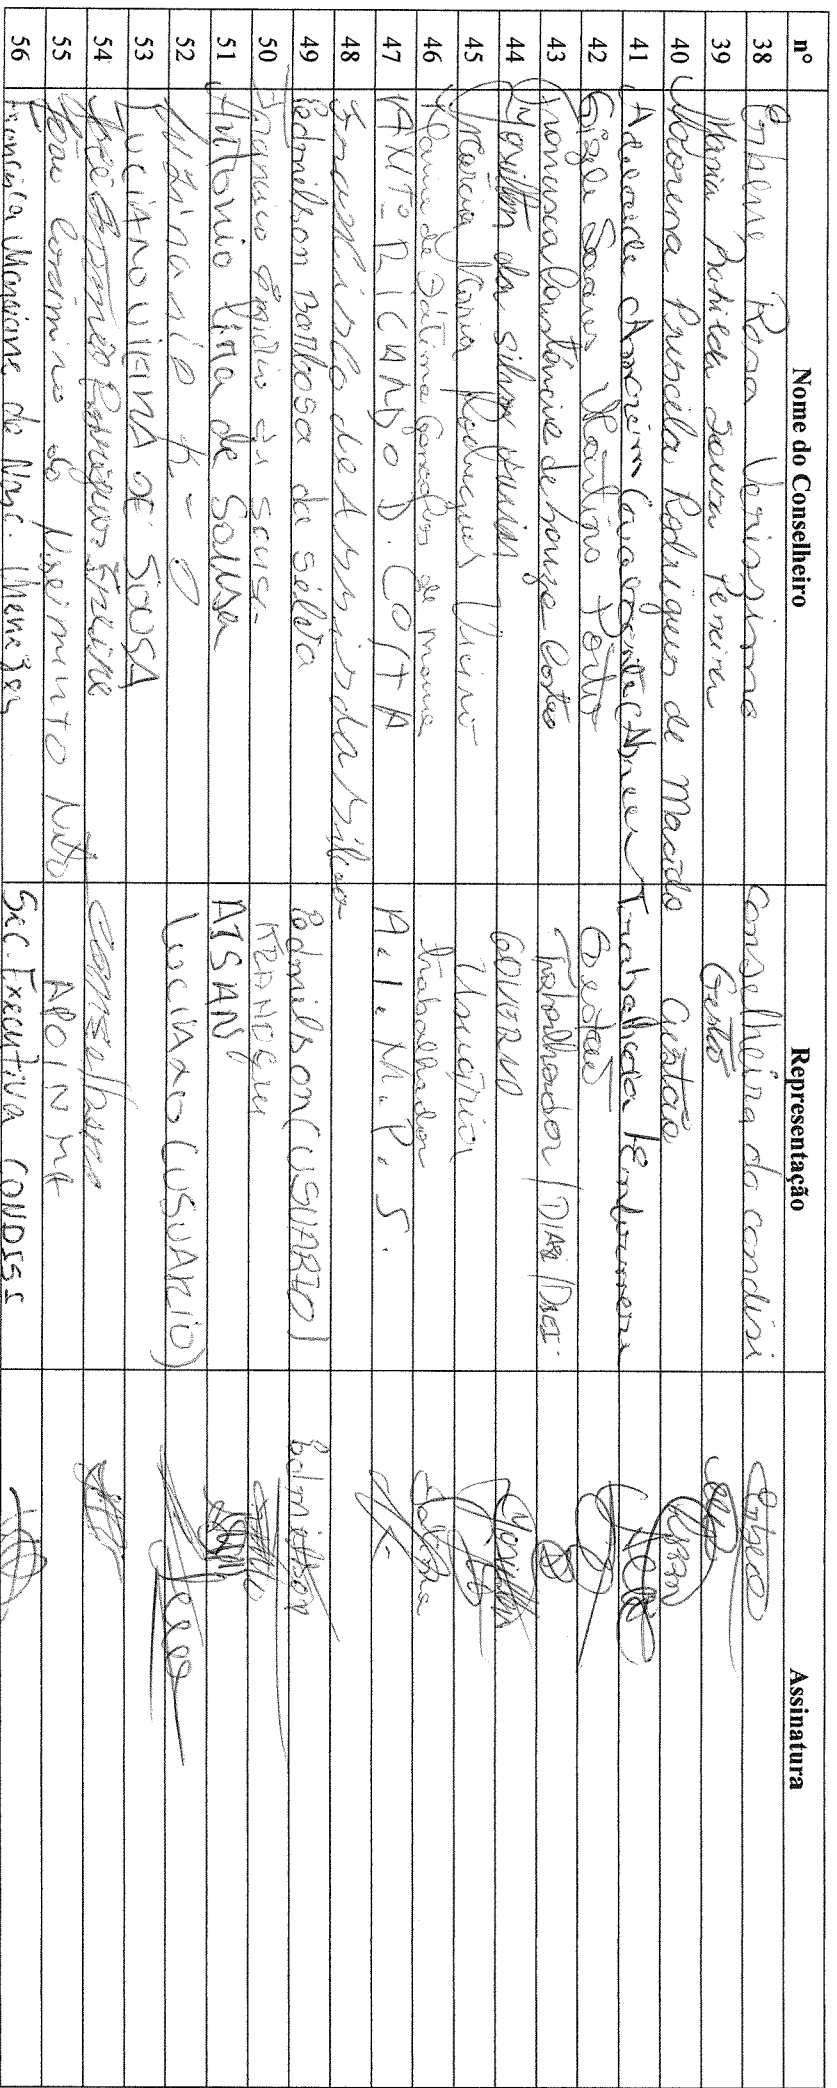 nº Nome do Conselheiro Representação Assinatura
38 Rosa Verissimo Conselheira do condisi
39 Maria Matilde Souza Pereira Gestão
40 Morena Priscila Rodrigues de Macêdo Gestão
41 Adelaide Amorim Cavalcante Abreu Trabalhora /Enfermeira
42 Gizele Soares Martins Porto Gestão
43 Francisca Constância de Souza Costa Trabalhador / DIASI /DSEI
44 da silva GOVERNO
45 Márcia Maria Rodrigues Usuária
46 Maria de Fátima Gonçalves de Moura trabalhador Fatima
47 ANTº RICARDO D. COSTA A. I. M. P. S.
48 Francisco de Assis da Silva
49 Edmilson Barbosa da Silva Edmilson (USUARIO) Edmilson
50 Francisco Emidio de Sousa
51 Antonio Lima de Sousa AISAN
52 LUCIANO (USUARIO)
53 LUCIANO VIANA DE SOUSA
54 José Rodrigues Freire Conselheiro
55 João Cassimiro do Nascimento Neto APOINME
56 Francisca Mariana do Nasc. Menezes Sec. Executiva CONDISI